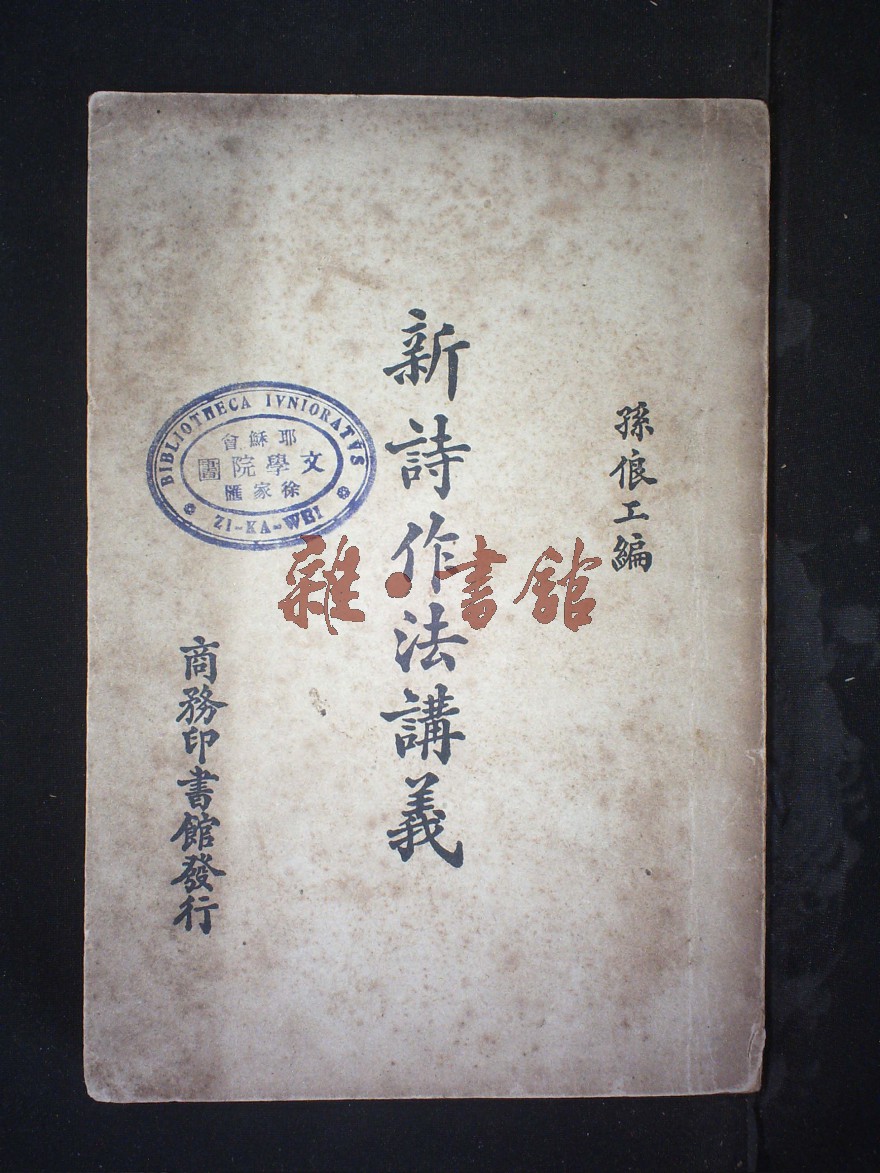 孫俍工編
新詩作法講義
商務印書館發行
BIBLIOTHECA IVNIORATVS
耶穌會
文學院圕
徐家匯
ZI-KA-WEI
雜·書館